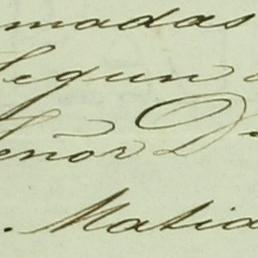 madas
Segun
eñor Dn
. Matia